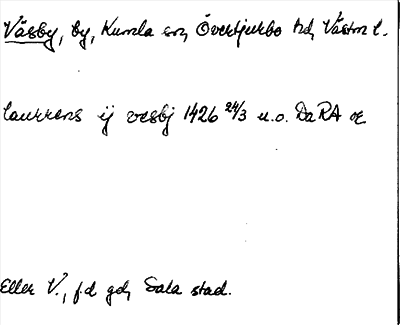 Väsby, by, Kumla sn, Övertjurbo hd, Västm l.
laurens ij vesbj 1426 24/3 u.o. DaRA or
Eller V., f.d gd, Sala stad.